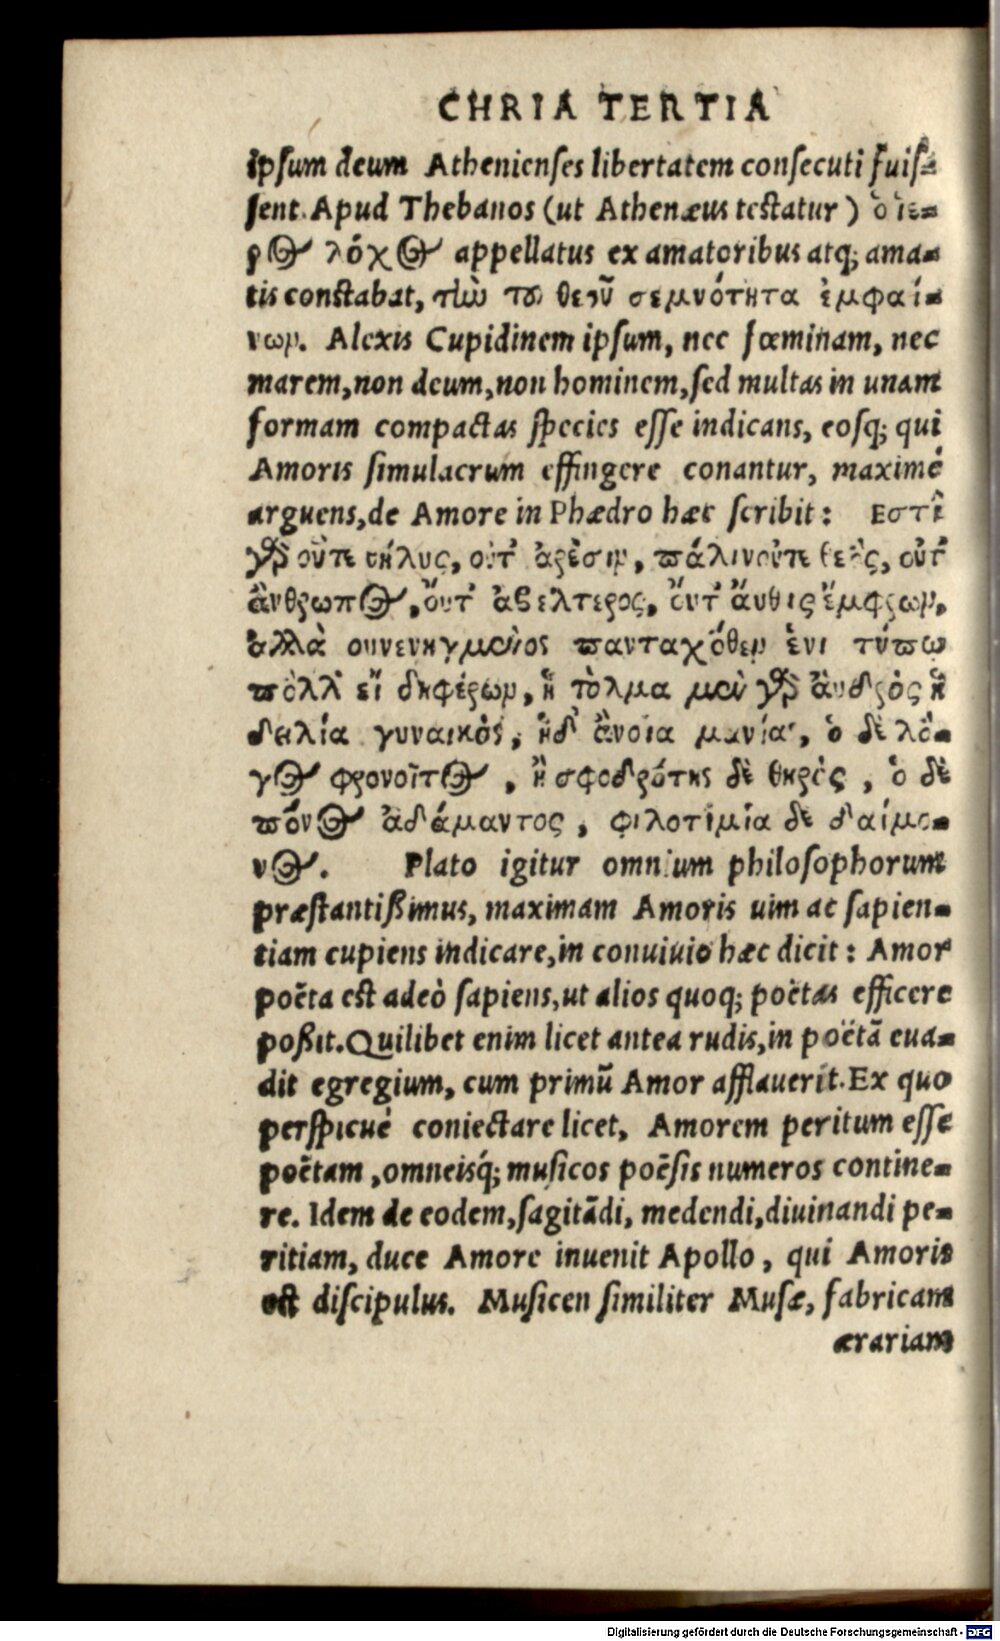 CHRIA TERTIA
ipsum deum Athenienses libertatem consecuti fuis-
sent. Apud Thebanos (ut Athenæus testatur) ὁ ἱε-
ρος λόχος appellatus ex amatoribus atq; ama-
tis constabat, τὴν τοῦ θεοῦ σεμνότητα ἐμφαί-
νων. Alexis Cupidinem ipsum, nec fœminam, nec
marem, non deum, non hominem, sed multas in unam
formam compactas species esse indicans, eosq; qui
Amoris simulacrum effingere conantur, maximè
arguens, de Amore in Phædro hæc scribit: Εστὶ
γὰρ οὔτε θήλυς, οὔτ' ἀρὲσιν, πάλιν οὔτε θεὸς, οὔτ'
ἄνθρωπος, οὔτ' ἀβελτερος, οὔτ' ἄυθις ἔμφρων,
ἀλλὰ συνενηγμένος πανταχόθεν ἑνι τύπω
πὸλλ' εἴδη φέρων, ἡ τὸλμα μὲν γὰρ ἀνδρὸς ἡ
δειλία γυναικὸς, ἡδ' ἄνοια μανίας, ὁ δὲ λό-
γος φρονοῖτος, ἡ σφοδρότης δὲ θηρὸς, ὁ δὲ
πόνος ἀδάμαντος, φιλοτιμία δὲ δαίμο-
νος. Plato igitur omnium philosophorum
præstantißimus, maximam Amoris uim ac sapien-
tiam cupiens indicare, in conuiuio hæc dicit: Amor
poëta est adeò sapiens, ut alios quoq; poëtas efficere
poßit. Quilibet enim licet antea rudis, in poëtã eua-
dit egregium, cum primũ Amor afflauerit. Ex quo
perspicuè coniectare licet, Amorem peritum esse
poëtam, omneisq́; musicos poësis numeros contine-
re. Idem de eodem, sagitãdi, medendi, diuinandi pe-
ritiam, duce Amore inuenit Apollo, qui Amoris
est discipulus. Musicen similiter Musæ, fabricam
ærariam
Digitalisierung gefördert durch die Deutsche Forschungsgemeinschaft - DFG